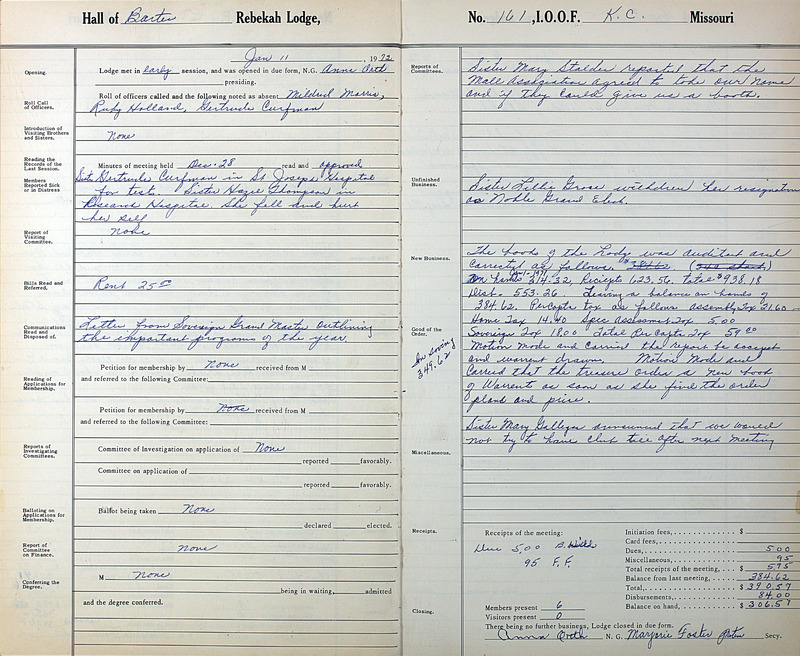 Hall of Baxter Rebekah Lodge,
Jan 11, 1972
Opening.
Lodge met in early session, and was opened in due form, N.G. Anna Orth
presiding.
Roll Call of Officers.
Roll of officers called and the following noted as absent Mildred Morris,
Ruby Holland, Gertrude Curfman
Introduction of Visiting Brothers and Sisters.
None
Reading the Records of the Last Session.
Minutes of meeting held Dec. 28 read and approved
Members Reported Sick or in Distress
Sister Gertrude Curfman in St Joseph Hospital
for test. Sister Hazel Thompson in
Research Hospital. She fell and hurt
her self
Report of Visiting Committee.
None
Bills Read and Referred.
Rent 25 00
Communications Read and Disposed of.
Letter from Sovereign Grand Master Outlining
the important programs of the year.
Petition for membership by None received from M
and referred to the following Committee:
Reading of Applications for Membership.
Petition for membership by None received from M
and referred to the following Committee:
Reports of Investigating Committees.
Committee of Investigation on application of None
reported favorably.
Committee on application of
reported favorably.
Balloting on Applications for Membership.
Ballot being taken None
declared elected.
Report of Committee on Finance.
None
Conferring the Degree.
M None
being in waiting, admitted
and the degree conferred.
No. 161, I.O.O.F. K.C. Missouri
Reports of Committees.
Sister Mary Stalder report that the
Mall Association agreed to take our name
and if they could give us a booth.
Unfinished Business.
Sister Lillie Grose withdrew her resignation
as Noble Grand Elect.
New Business.
The book of the Lodge was audited and
correct as follows.
On hand 314.32, Reciepts 623.56, total $938.18
Disb. 553.26 Leaving a balance on hand of
384.62. Per Capita tax as follows assembly Tax 21.60
Home Tax 14.40 Spec Assessment Tax 5.00
Sovereign Tax 18.00 Total Per Capita Tax 59.00
Good of the Order.
In Saving
349.62
Motion Made and Carried the report be accept
and warrent drawn. Motion Made and
Carried that the treasure order a new book
of Warrents as soon as she find the order
pland and price.
Sister Mary Gallegos announced that we would
not try to have Club till after next meeting
Miscellaneous.
Receipts.
Receipts of the meeting:
Due 5.00
95 F.F.
Initiation fees, $
Card fees,
Dues, 5 00
Miscellaneous, 95
Total receipts of the meeting, $ 5 95
Balance from last meeting, 384.62
Total, $ 390.57
Disbursements, 84.00
Balance on hand, $ 306.57
Members present 6
Visitors present 0
Closing.
There being no further business, Lodge closed in due form.
Anna Orth N. G. Marjorie Foster Secy.